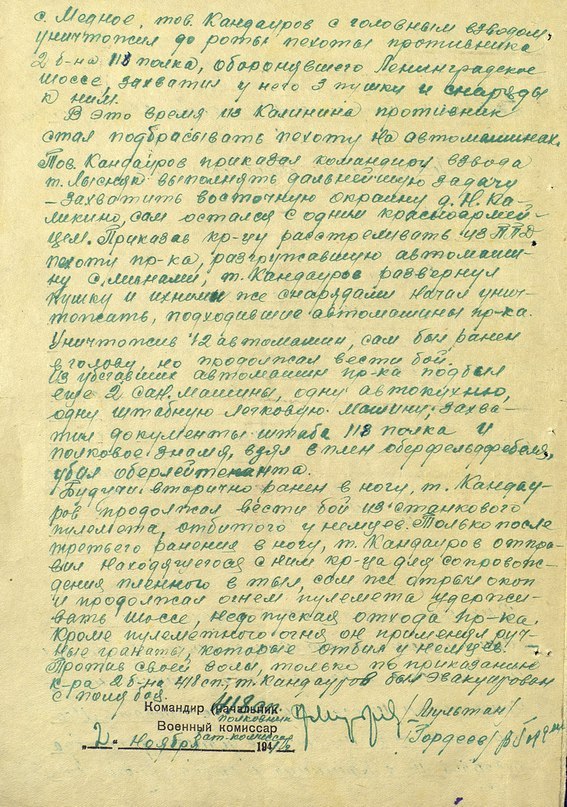 с. Медное, тов. Кандауров с головным взводом,
уничтожил до роты пехоты противника
2 б-на 118 полка, оборонявшего Ленинградское
шоссе, захватил у него 3 пушки и снаряды
к ним.
В это время из Калинина противник
стал подбрасывать пехоту на автомашинах.
Тов. Кандауров приказал командиру взвода
т. Лысняк выполнять дальнейшую задачу
– захватить восточную окраину д. Н. Ка-
ликино, сам остался с одним красноармей-
цем. Приказав кр-цу расстреливать из ППД
пехоту пр-ка, разгружавшую автомаши-
ну с минами, т. Кандауров развернул
пушку и ихними же снарядами начал унич-
тожать, подходившие автомашины пр-ка.
Уничтожив 12 автомашин, сам был ранен
в голову, но продолжал вести бой.
Из убегавших автомашин пр-ка подбил
еще 2 сан. машины, одну автокухню,
одну штабную легковую машину; захва-
тил документы штаба 118 полка и
полковое знамя, взял в плен оберфельдфебеля,
убил оберлейтенанта.
Будучи вторично ранен в ногу, т. Кандау-
ров продолжал вести бой из станкового
пулемета, отбитого у немцев. Только после
третьего ранения в ногу, т. Кандауров отпра-
вил находящегося с ним кр-ца для сопровож-
дения пленного в тыл, сам же отрыл окоп
и продолжал огнем пулемета удержи-
вать шоссе, недопуская отхода пр-ка.
Кроме пулеметного огня он применял руч-
ные гранаты, которые отбил у немцев.
Против своей воли, только по приказанию
к-ра 2 б-на 418 сп, т. Кандауров был эвакуирован
с поля боя.
Командир (начальник
полковник /Мультан/
Военный комиссар
бат. комиссар /Гордеев/
„2“ ноября 194